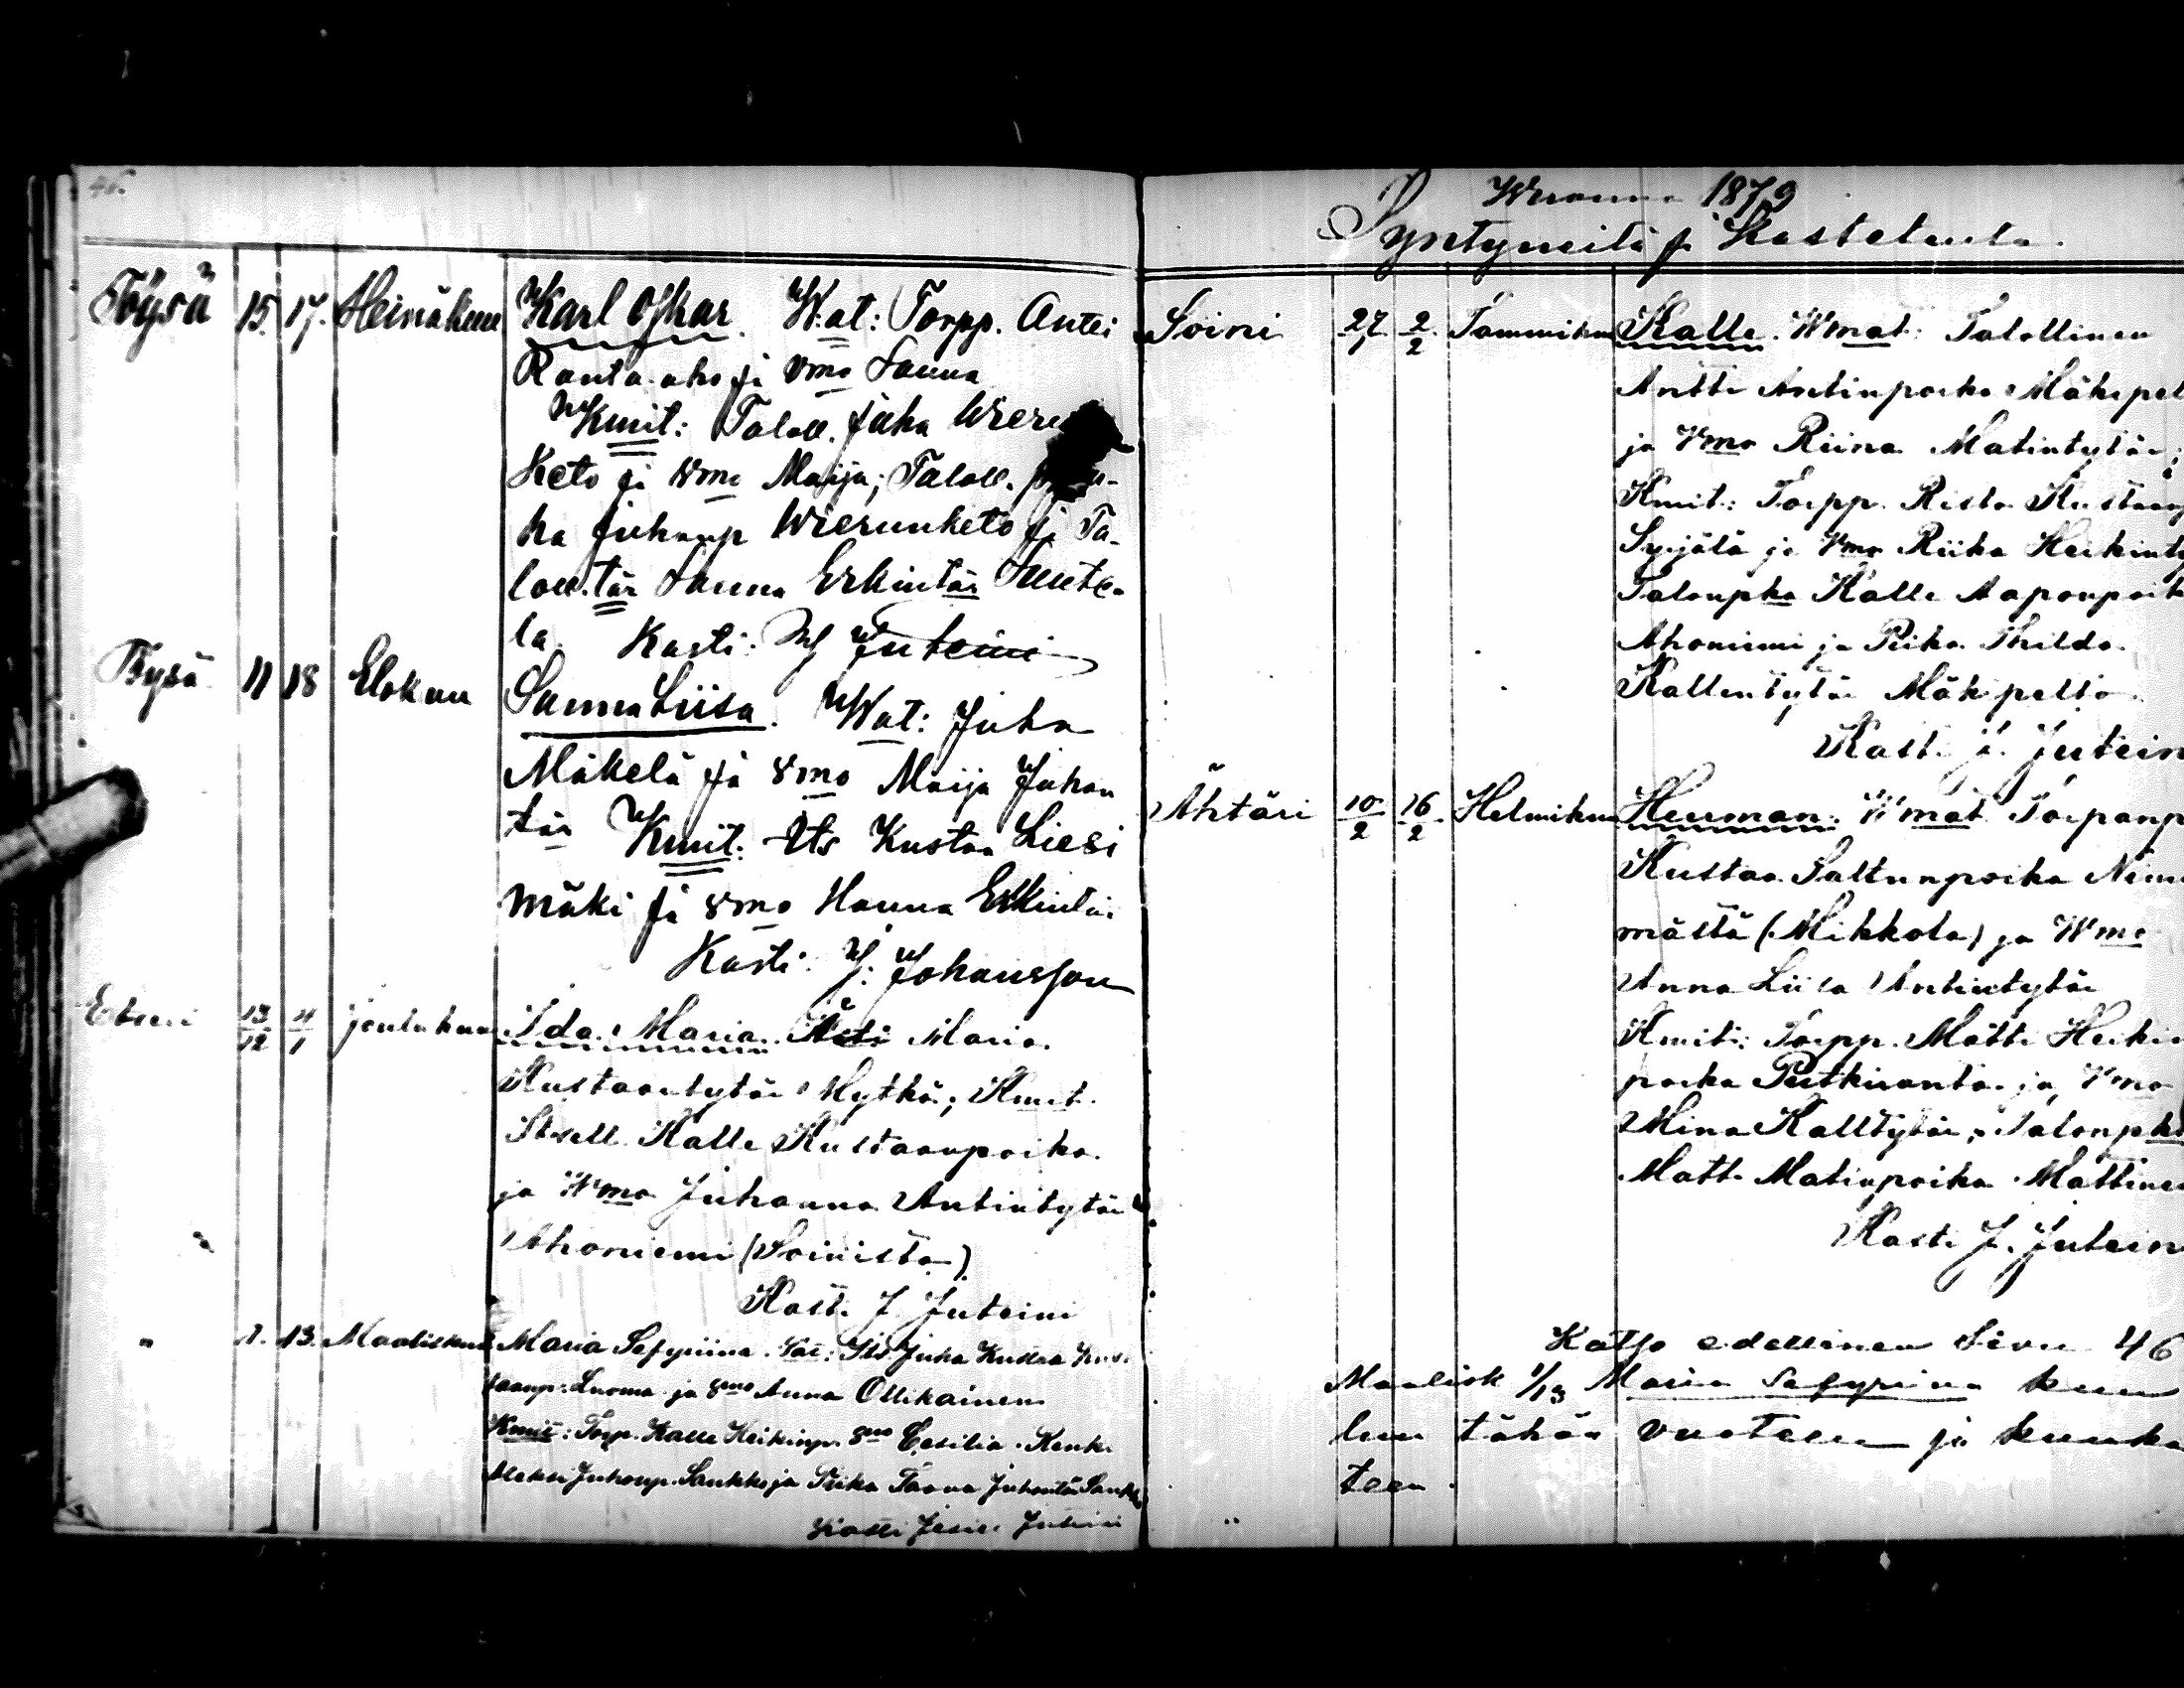 46.
Töysä 15. 17. Heinäkuu Karl Oskar. Wat: Torpp. Antti
Ranta-aho ja vmo Sanna
Kmit: Taloll. Juha Wieru
Keto ja vmo Maija; Taloll. p
ka Juhanp Wierunketo ja Ta-
loll.tär Sanna Erkintär Sante-
la. Kasti: J Juteini
Töysä 11 18 Elokuu Sanna Liisa. Wat: Juha
Mäkelä ja vmo Maija Juhan
tär Kmit: Its Kustaa Liesi
mäki ja vmo Hanna Erkintär
Kasti: J. Johansson
Etseri 13/12 4/1 joulukuu Ida Maria. Äiti Maria
Kustaantytär Mytkä; Kmit.
Kalle Kustaanpoika
ja Wmo Juhanna Antintytär
Ahoniemi (Soinista)
Kasti J Juteini
" 1. 13. Maaliskuu Maria Sefyriina. Its Juha Kustaa Kus-
taanp. Luoma ja vmo Anna Ollikainen
Kmit: Torp. Kalle Heikinp. vmo Cesilia. Renki
Aleksi Juhonp. Saukko ja Piika Taava Juhontär Saukko
Kasti Juteini
Wuonna 1879
Syntyneitä ja Kastetuita.
Soini 27/1 2/2 Tammikuu Kalle. Wmat: Talollinen
Antti Antinpoika Mäkipel
ja Vmo Riina Matintytär;
Kmit: Torpp. Risto Kustaanp
Syrjälä ja Vmo Riika Heikinty
Talonpka Kalle Aaponpoik
Ahoniemi ja Piika Thilda
Kallentytär Mäkipelto
Kasti J. Jutein
Ähtäri 10/2 16/2 Helmikuu Herman. Wmat Torpanp
Kustaa Salunpoika Niini
mästä (Mikkola) ja Wmo
Anna Liisa Antintytär
Kmit: Torpp. Matti Heikin
poika Putkiranta ja Vmo
Miina Kalltytär; Talonpka
Matti Matinpoika Mattinen
Kasti J. Jutein
Katso edellinen Sivu 46
Maalisk 1/13 Maria Sefyriina kuu
luu tähän vuoteen ja kuuka
teen.
"